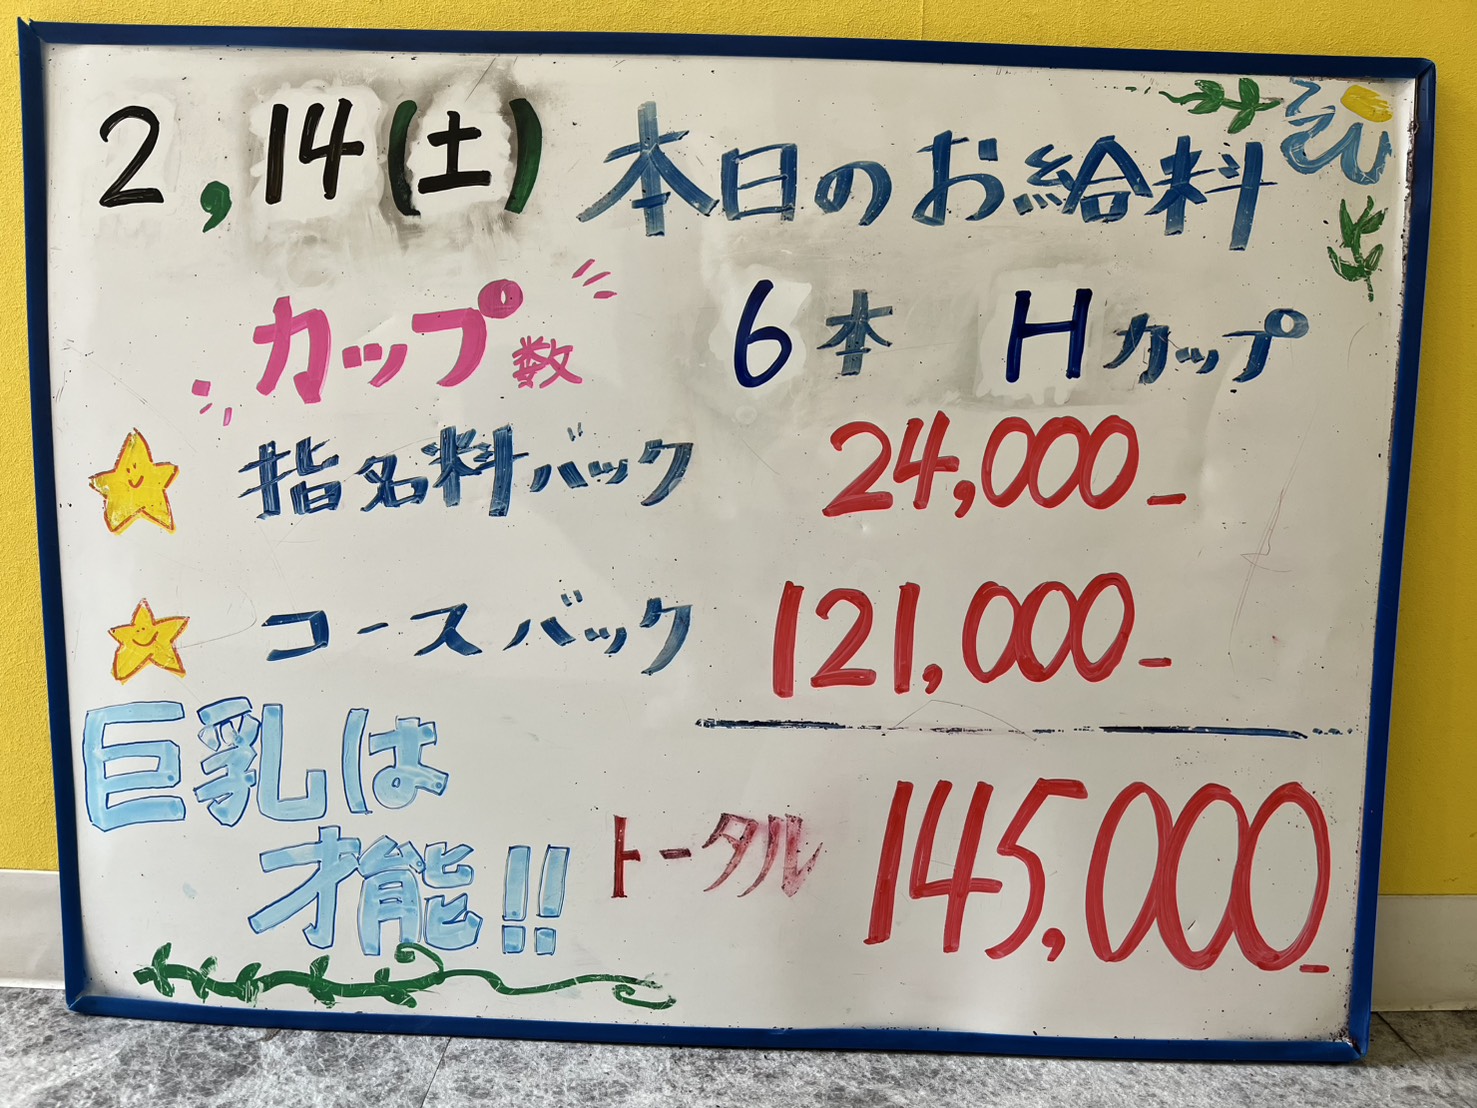 2,14(土) 本日のお給料
カップ数 6本 Hカップ
指名料バック 24,000-
コースバック 121,000-
巨乳は
才能!!
トータル 145,000-